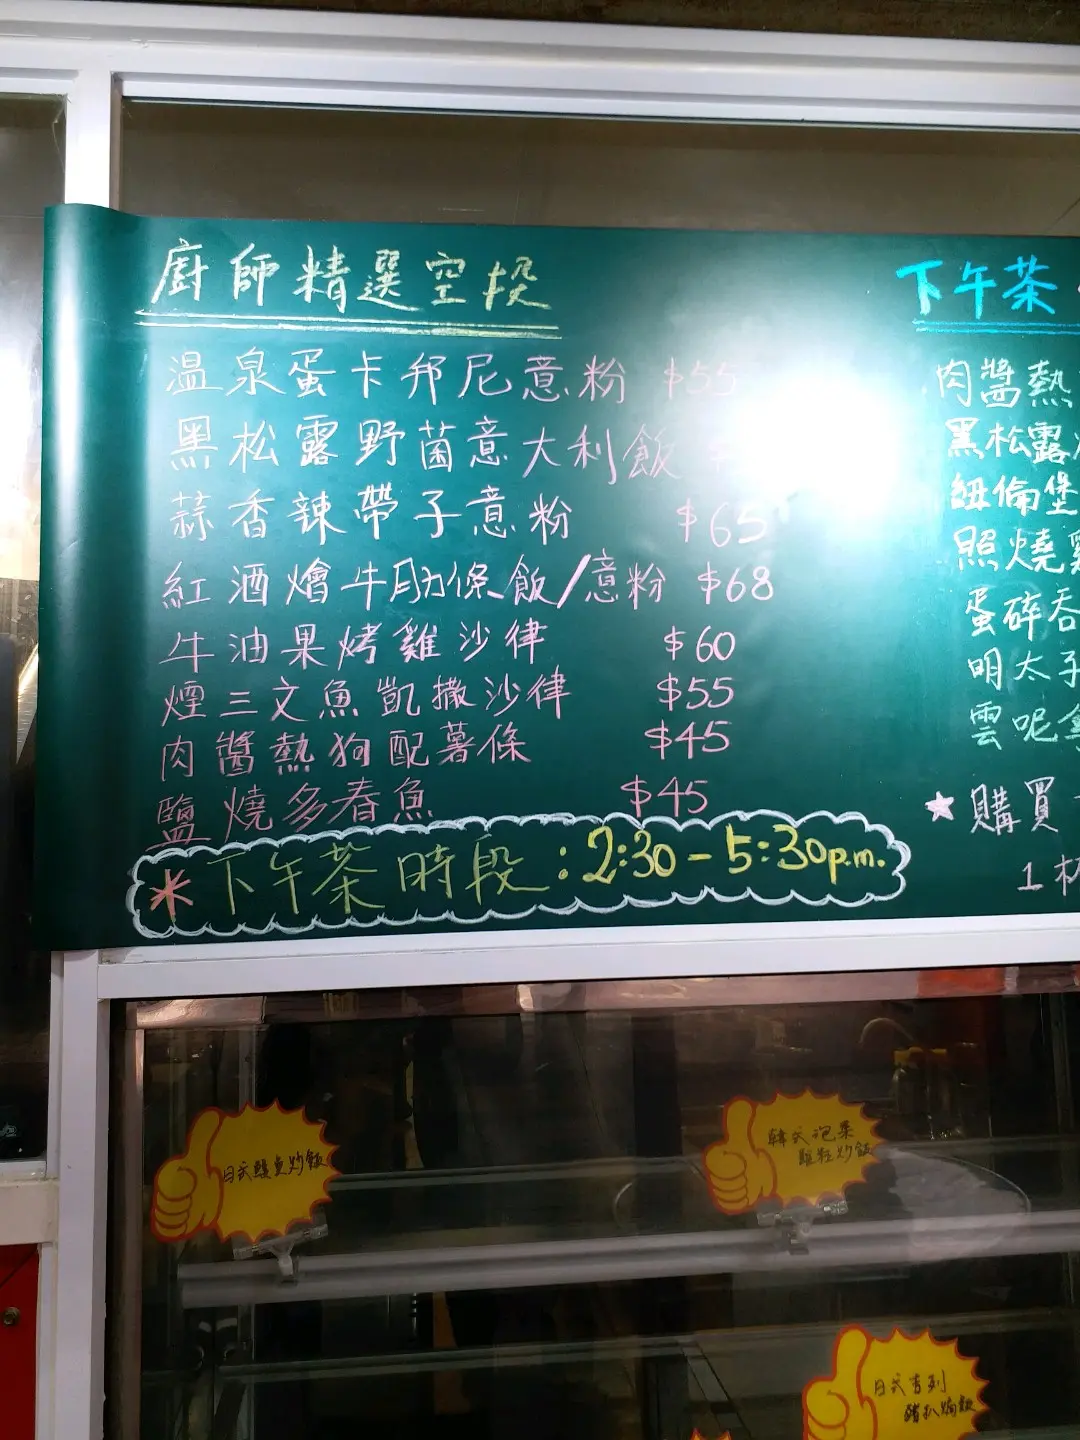 廚師精選空投
温泉蛋卡邦尼意粉 $55
黑松露野菌意大利飯
蒜香辣帶子意粉 $65
紅酒燴牛肋條飯/意粉 $68
牛油果烤雞沙律 $60
煙三文魚凱撒沙律 $55
肉醬熱狗配薯條 $45
鹽燒多春魚 $45
*下午茶時段:2:30-5:30p.m.
下午茶
肉醬熱
黑松露
紐倫堡
照燒雞
蛋碎吞
明太子
雲呢拿
★購買
1杯
日式鰻魚炒飯
韓式泡菜
雞粒炒飯
日式吉列
豬扒焗飯